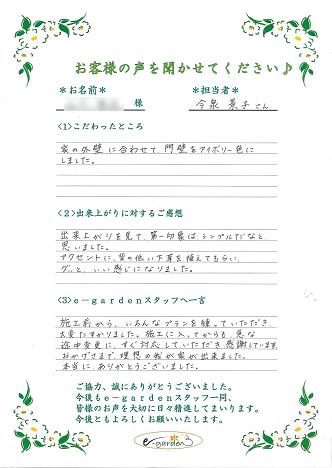 お客様の声を聞かせてください♪
＊お名前＊
＊担当者＊
様
今泉 景子さん
<1>こだわったところ
家の外壁に合わせて、門壁をアイボリー色に
しました。
<2>出来上がりに対するご感想
出来上がりを見て、第一印象は、シンプルだなと、
思いました。
アクセントに、背の低い下草を植えてもらい、
グッと、いい感じになりました。
<3>e－gardenスタッフへ一言
施工前から、いろんなプランを練っていただき、
大変たすかりました。施工に入ってからも、急な
途中変更に、すぐ対応していただき感謝しています。
おかげさまで、理想の我が家が出来ました。
本当に、ありがとうございました。
ご協力、誠にありがとうございました。
今後もe－gardenスタッフ一同、
皆様のお声を大切に日々精進してまいります。
今後ともよろしくお願いいたします。
e-garden